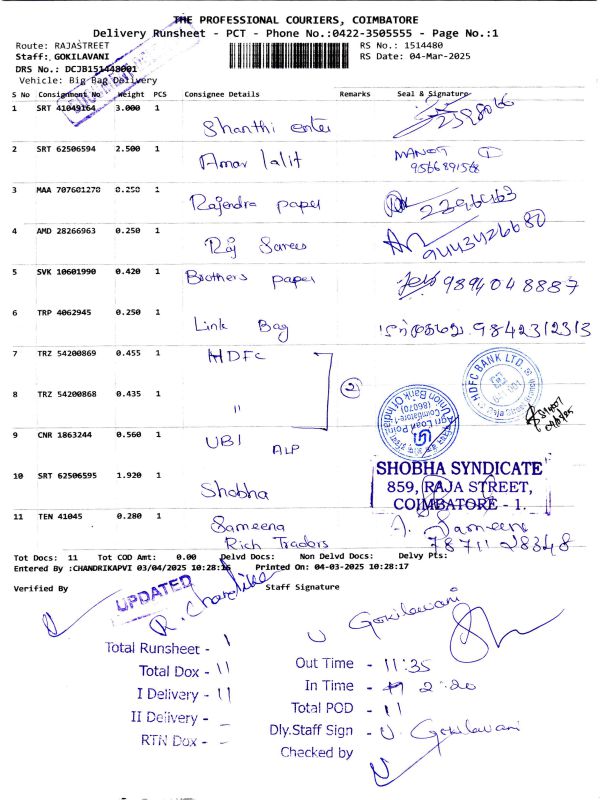 THE PROFESSIONAL COURIERS, COIMBATORE
Delivery Runsheet - PCT - Phone No.:0422-3505555 - Page No.:1
Route: RAJASTREET
RS No.: 1514480
Staff: GOKILAVANI
RS Date: 04-Mar-2025
DRS No.: DCJB151448001
Vehicle: Big Bag Delivery
S No Consignment No Weight PCS Consignee Details Remarks Seal & Signature
1 SRT 41049164 3.000 1 Shanthi enter
2 SRT 62506594 2.500 1 Amar lalit MANOJ 9566891568
3 MAA 707601270 0.250 1 Rajendra paper
4 AMD 28266963 0.250 1 Raj Sarees
5 SVK 10601990 0.420 1 Brothers paper 9894048887
6 TRP 4062945 0.250 1 Link Bag 9842312313
7 TRZ 54200869 0.455 1 HDFC
HDFC BANK LTD.
8 TRZ 54200868 0.435 1 "
2
Union Bank Of India
(86070)
9 CNR 1863244 0.560 1 UBI ALP
10 SRT 62506595 1.920 1 Shobha
SHOBHA SYNDICATE
859, RAJA STREET,
COIMBATORE - 1.
11 TEN 41045 0.280 1 Sameena
Rich Traders
A. Sameena
Tot Docs: 11 Tot COD Amt: 0.00 Delvd Docs: Non Delvd Docs: Delvy Pts:
Entered By :CHANDRIKAPVI 03/04/2025 10:28:16 Printed On: 04-03-2025 10:28:17
Verified By Staff Signature
UPDATED
R. Chandrika
U Gokilavani
Total Runsheet - 1
Total Dox - 11
I Delivery - 11
II Delivery - –
RTN Dox - –
Out Time - 11:35
In Time - 2:20
Total POD - 11
Dly.Staff Sign - U. Gokilavani
Checked by